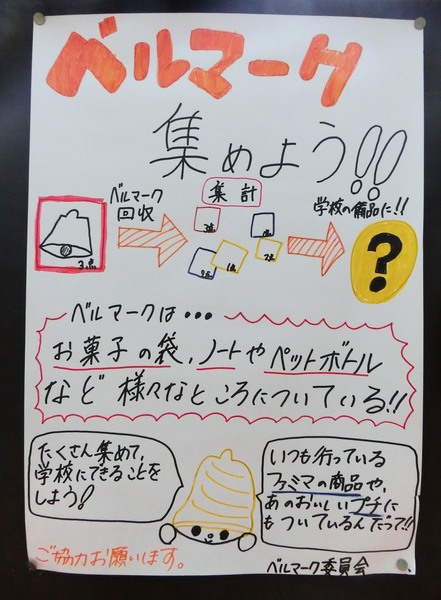 ベルマーク
集めよう!!
ベルマーク
回収
集計
学校の備品に!!
3点
3点
1点
2点
1点
2点
?
ベルマークは・・・
お菓子の袋、ノートやペットボトル
など 様々なところについている!!
たくさん集めて、
学校にできることを
しよう!
いつも行っている
ファミマの商品や、
あのおいしいプチに
もついているんだって!!
ご協力お願いします。
ベルマーク委員会